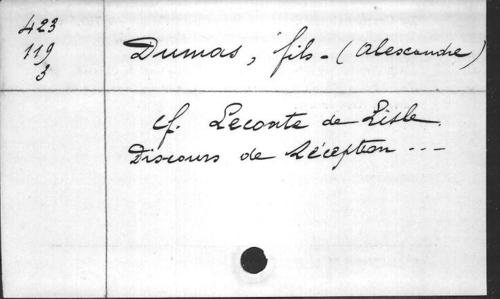 423
119
3
Dumas, fils - (Alexandre)
cf. Leconte de Lisle.
Discours de Réception ---